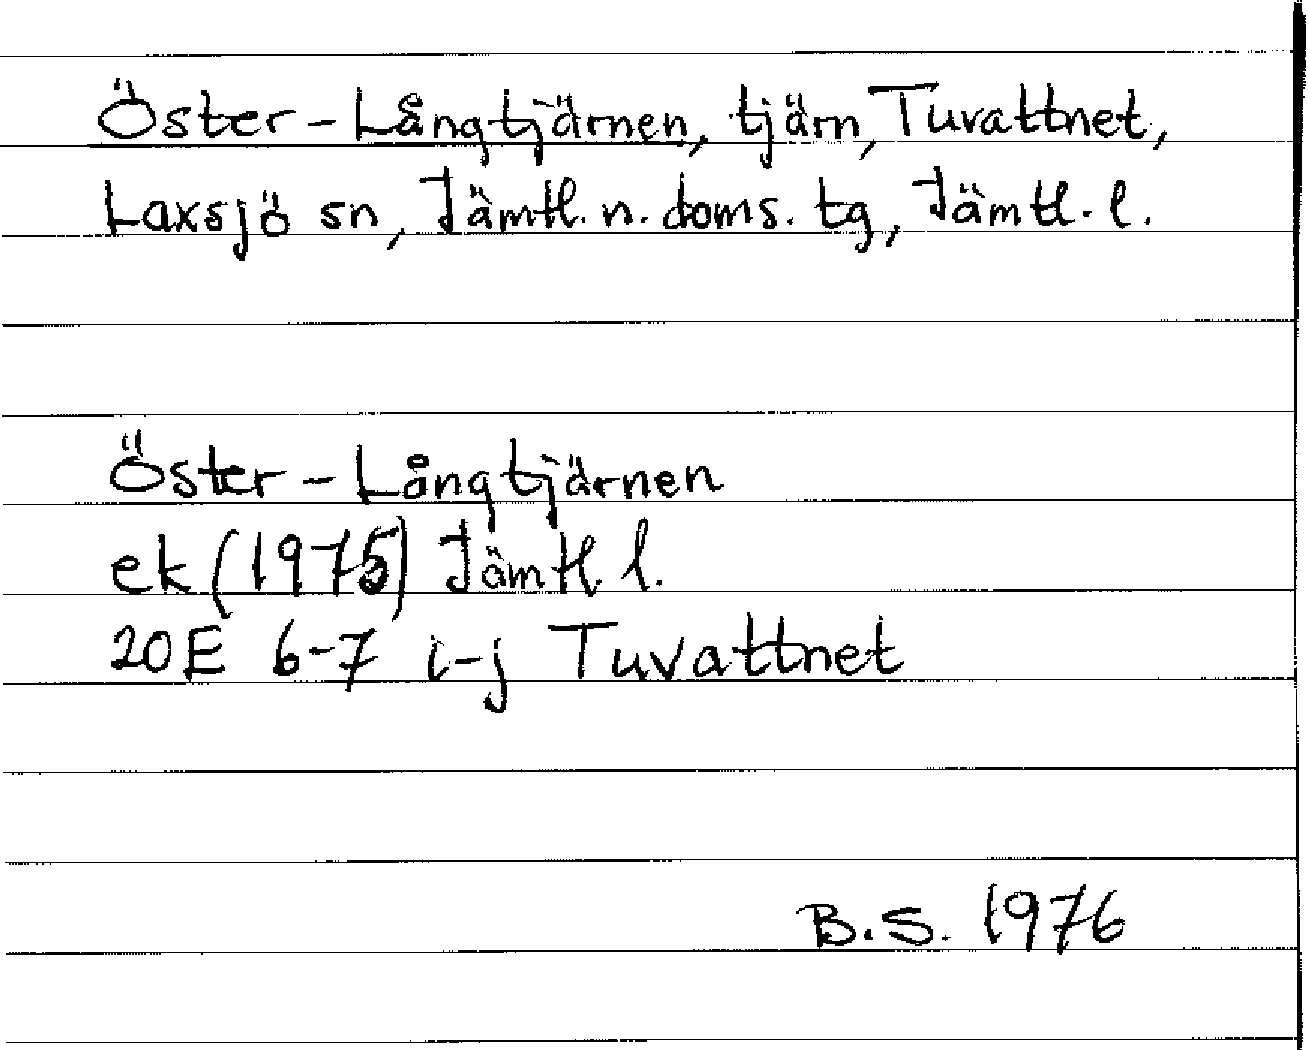 Öster-Långtjärnen, tjärn, Tuvattnet,
Laxsjö sn, Jämtl. n. doms. tg, Jämtl. l.
Öster-Långtjärnen
ek (1975) Jämtl. l.
20E 6-7 i-j Tuvattnet
B.S. 1976